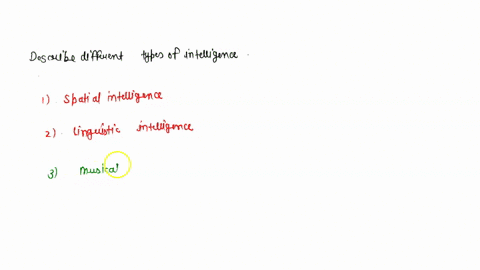 Describe different types of intelligence.
1) Spatial intelligence
2) linguistic intelligence
3) musical